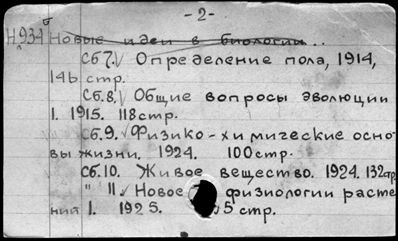 - 2 -
Н.934б Новые идеи в биологии...
Сб.7.√ Определение пола, 1914,
146 стр.
Сб.8.√ Общие вопросы эволюции
1. 1915. 118 стр.
Сб.9.√ Физико-химические осно-
вы жизни. 1924. 100 стр.
Сб.10. Живое вещество. 1924. 132 стр.
" 11.√ Новое физиологии расте
ний 1. 1925. 5 стр.